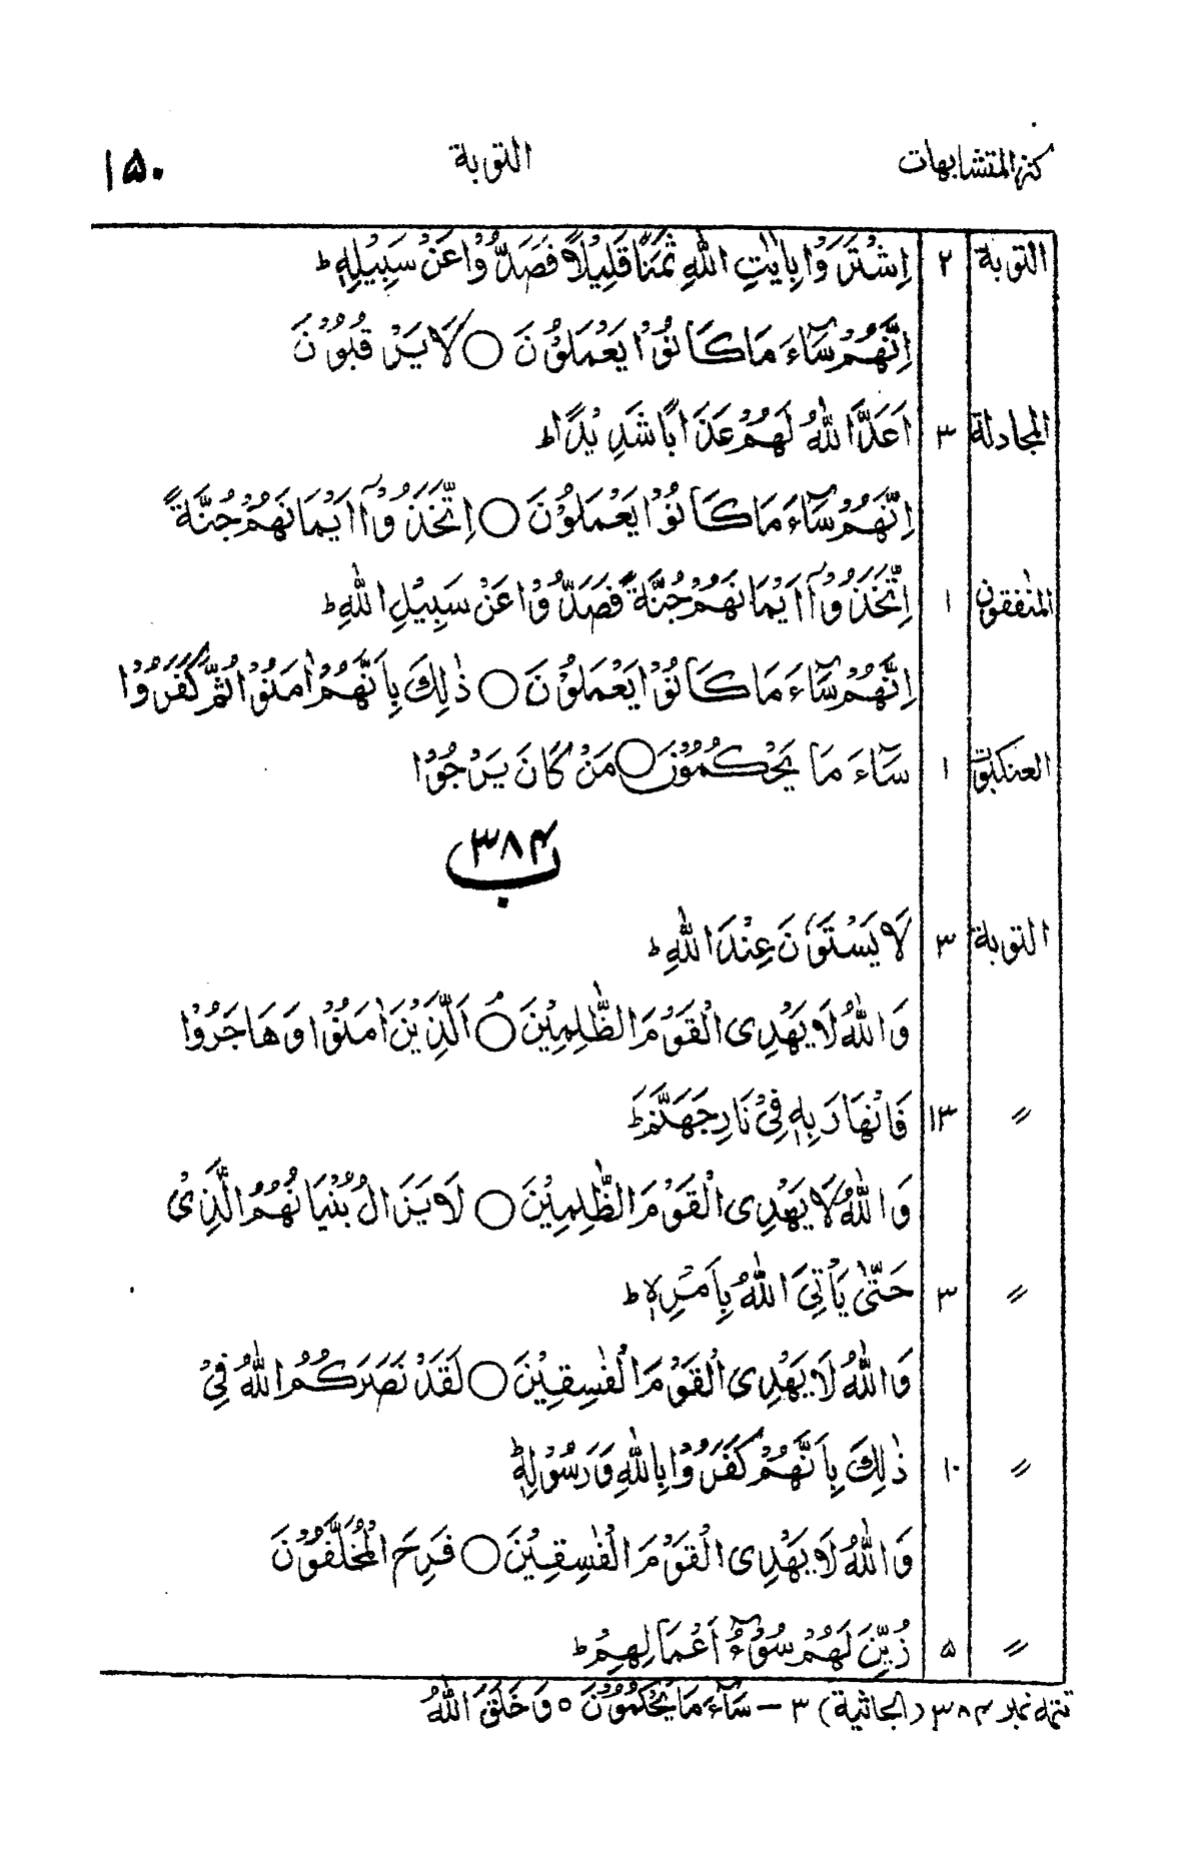 كنز المتشابهات التوبة ۱۵۰
التوبة ۲ اِشْتَرَوْا بِاٰيٰتِ اللّٰهِ ثَمَنًا قَلِيْلًا فَصَدُّوْا عَنْ سَبِيْلِهٖ ؕ
اِنَّهُمْ سَآءَ مَا كَانُوْا يَعْمَلُوْنَ ○ لَا يَرْقُبُوْنَ
المجادلة ۳ اَعَدَّ اللّٰهُ لَهُمْ عَذَابًا شَدِيْدًا ؕ
اِنَّهُمْ سَآءَ مَا كَانُوْا يَعْمَلُوْنَ ○ اِتَّخَذُوْٓا اَيْمَانَهُمْ جُنَّةً
المنٰفقون ۱ اِتَّخَذُوْٓا اَيْمَانَهُمْ جُنَّةً فَصَدُّوْا عَنْ سَبِيْلِ اللّٰهِ ؕ
اِنَّهُمْ سَآءَ مَا كَانُوْا يَعْمَلُوْنَ ○ ذٰلِكَ بِاَنَّهُمْ اٰمَنُوْا ثُمَّ كَفَرُوْا
العنكبوت ۱ سَآءَ مَا يَحْكُمُوْنَ ○ مَنْ كَانَ يَرْجُوْا
ب ۳۸۴
التوبة ۳ لَا يَسْتَوٗنَ عِنْدَ اللّٰهِ ؕ
وَاللّٰهُ لَا يَهْدِى الْقَوْمَ الظّٰلِمِيْنَ ○ۘ اَلَّذِيْنَ اٰمَنُوْا وَهَاجَرُوْا
〃 ۱۳ فَانْهَارَ بِهٖ فِىْ نَارِ جَهَنَّمَ ؕ
وَاللّٰهُ لَا يَهْدِى الْقَوْمَ الظّٰلِمِيْنَ ○ لَا يَزَالُ بُنْيَانُهُمُ الَّذِىْ
〃 ۳ حَتّٰى يَاْتِىَ اللّٰهُ بِاَمْرِهٖ ؕ
وَاللّٰهُ لَا يَهْدِى الْقَوْمَ الْفٰسِقِيْنَ ○ لَقَدْ نَصَرَكُمُ اللّٰهُ فِىْ
〃 ۱۰ ذٰلِكَ بِاَنَّهُمْ كَفَرُوْا بِاللّٰهِ وَرَسُوْلِهٖ ؕ
وَاللّٰهُ لَا يَهْدِى الْقَوْمَ الْفٰسِقِيْنَ ○ فَرِحَ الْمُخَلَّفُوْنَ
〃 ۵ زُيِّنَ لَهُمْ سُوْٓءُ اَعْمَالِهِمْ ؕ
تتمہ نمبر ۳۸۴ (الجاثية) ۳ – سَآءَ مَا يَحْكُمُوْنَ ○ وَخَلَقَ اللّٰهُ